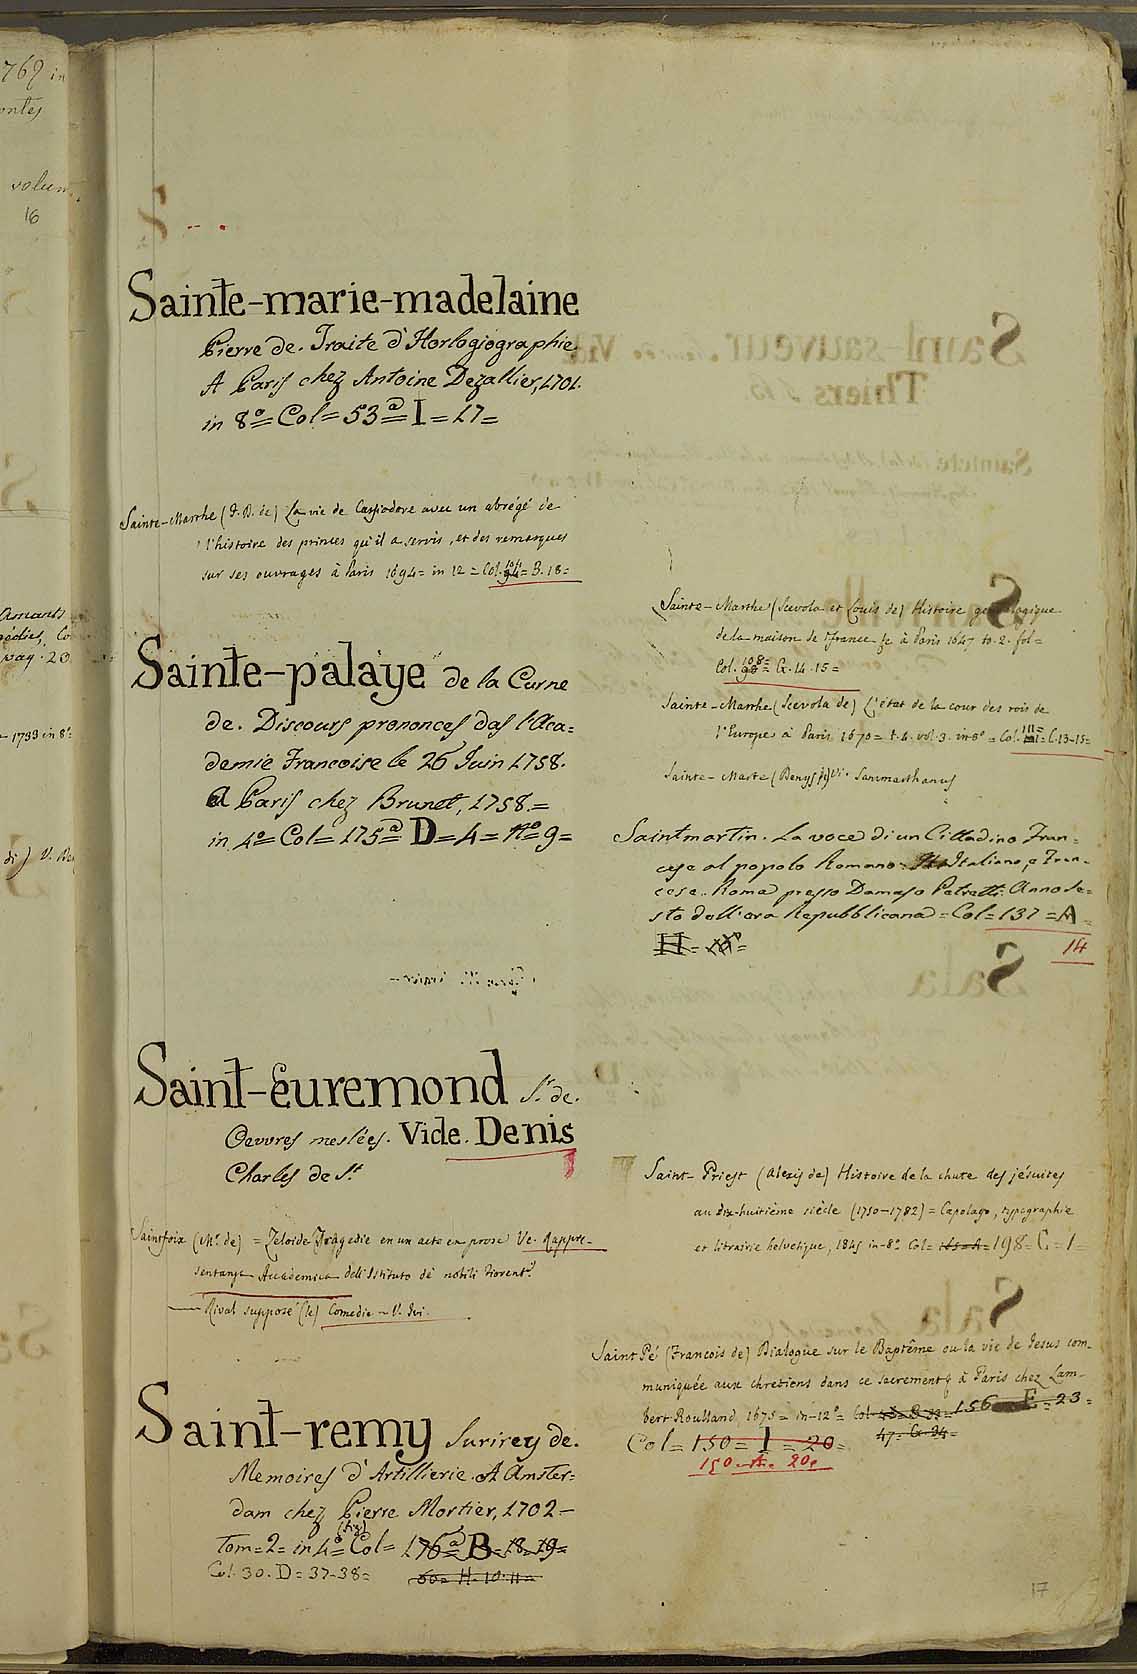 Sainte-marie-madelaine
Pierre de. Traite d'Horlogiographie.
A Paris chez Antoine Dezallier, 1701.
in 8º = Col = 53ª = I = 17 =
Sainte-Marthe (D. de) La vie de Cassiodore avec un abrégé de
l'histoire des princes qu'il a servis, et des remarques
sur ses ouvrages à Paris 1694 = in 12 = Col. = B. 18 =
Sainte-palaye de la Curne
de. Discours prononces das l'Aca=
demie Francoise le 26 Juin 1758.
A Paris chez Brunet, 1758. =
in 4º = Col = 175ª D = 4 = Nº = 9 =
Saint-Euremond Sr. de.
Oeuvres meslées. Vide. Denis
Charles de St.
Saintfoix (Mr. de) = Zeloide Tragedie en un acte en prose Ve. Rappre=
sentanze Accademica dell'Istituto de' nobili Fiorent.
— Rival supposé (le) Comedie - V. Ivi.
Saint-remy Surirey de.
Memoires d'Artillierie. A Amster=
dam chez Pierre Mortier, 1702 –
(fig)
Tom = 2 = in 4º = Col = 176ª = B = 18 = 19 =
Col. 30. D = 37-38 = 60 = H. 10. 11 =
Sainte-Marthe (Scevola et Louis de) Histoire genealogique
de la maison de France &c à Paris 1647 to. 2. fol =
Col. 108 = G. 14. 15 =
Sainte-Marthe (Scevola de) L'état de la cour des rois de
l'Europe à Paris 1670 = t. 4. vol. 3. in 8º = Col. III = C. 13-15 =
Sainte-Marte (Denys) Vi. Sammarthanus
Saintmartin. La voce di un Cittadino Fran=
cese al popolo Romano. Italiano, e Fran=
cese. Roma presso Damaso Petretti. Anno Se=
sto dell'era Repubblicana = Col = 137 = A =
H = 14
Saint-Priest (Alexis de) Histoire de la chute des jésuites
au dix-huitième siècle (1750-1782) = Capolago, typographie
et librairie helvetique, 1845 in-8º Col = 165 = A = 198 = C = 1 =
Saint Pé (Francois de) Dialogue sur le Baptême ou la vie de Jesus com-
muniquée aux chretiens dans ce sacrement à Paris chez Lam-
bert Roulland, 1675 = in-12º = Col 156 E = 23 =
47 = G. 24 =
Col = 150 = I = 20 =
150 = A = 20.
17